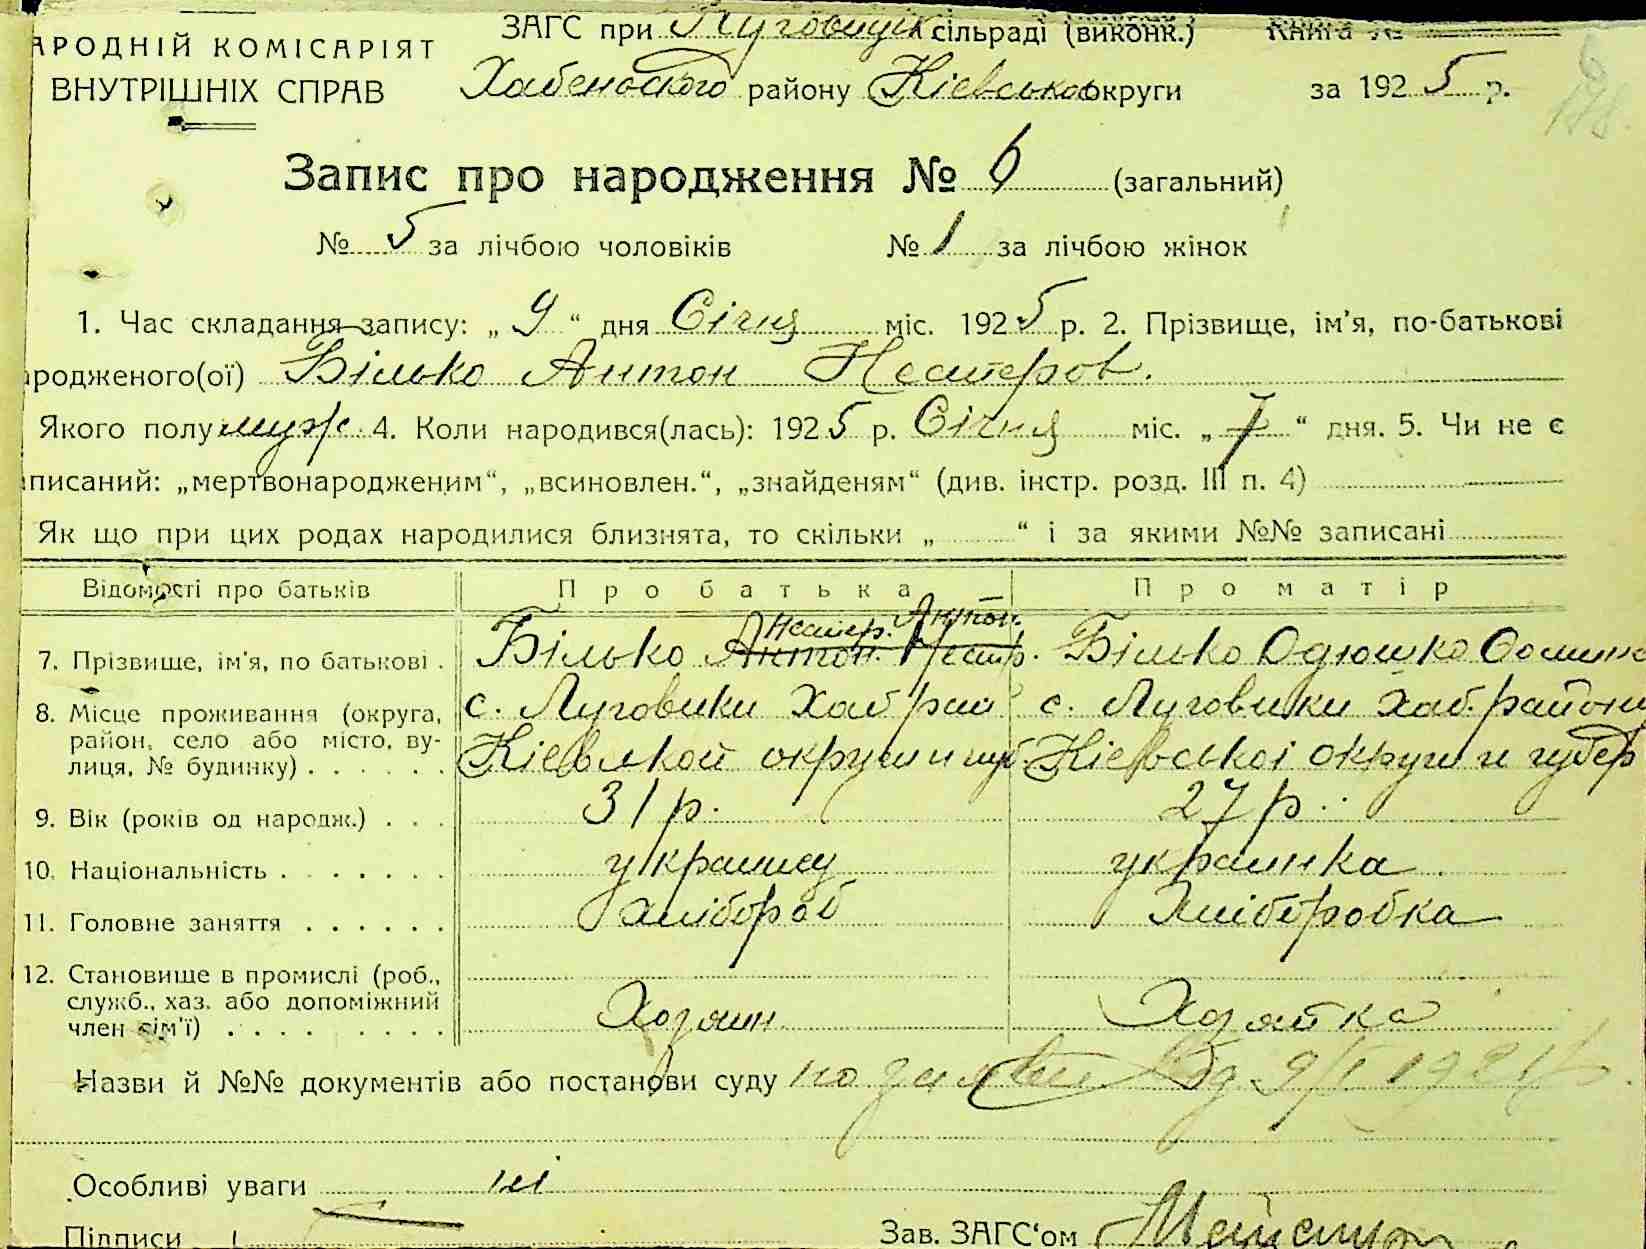 АРОДНІЙ КОМІСАРІЯТ
ВНУТРІШНІХ СПРАВ
ЗАГС при Луговицькій сільраді (виконк.) Книга №
Хабенського району Кіевської округи за 1925 р.
Запис про народження № 6 (загальний)
№ 5 за лічбою чоловіків № 1 за лічбою жінок
1. Час складання запису: „ 9 “ дня Січня міс. 1925 р. 2. Прізвище, ім'я, по-батькові
родженого(ої) Білько Антон Нестеров.
Якого полу муж. 4. Коли народився(лась): 1925 р. Січня міс. „ 7 “ дня. 5. Чи не є
писаний: „мертвонародженим“, „всиновлен.“, „знайденям“ (див. інстр. розд. III п. 4)
Як що при цих родах народилися близнята, то скільки „ “ і за якими №№ записані
Відомості про батьків Про батька Про матір
Нестер. Антон.
7. Прізвище, ім'я, по батькові . Білько Антон. Нестр. Білько Одюшка
8. Місце проживання (округа, район, село або місто, ву-лиця, № будинку) . . . . . .
с. Луговики Хаб раи с. Луговики Хаб. району
Кіевской округи и губ. Кіевської округи и губер
9. Вік (років од народж.) . . . 31 р. 27 р.
10. Національність . . . . . . . украинец украинка
11. Головне заняття . . . . . . хлібороб Хлiборобка
12. Становище в промислі (роб., служб., хаз. або допоміжний член сім'ї) . . . . . . . . . Хозяин Хозяйка
Назви й №№ документів або постанови суду по заяві Від 9/I
Особливі уваги ні
Підписи Зав. ЗАГС'ом